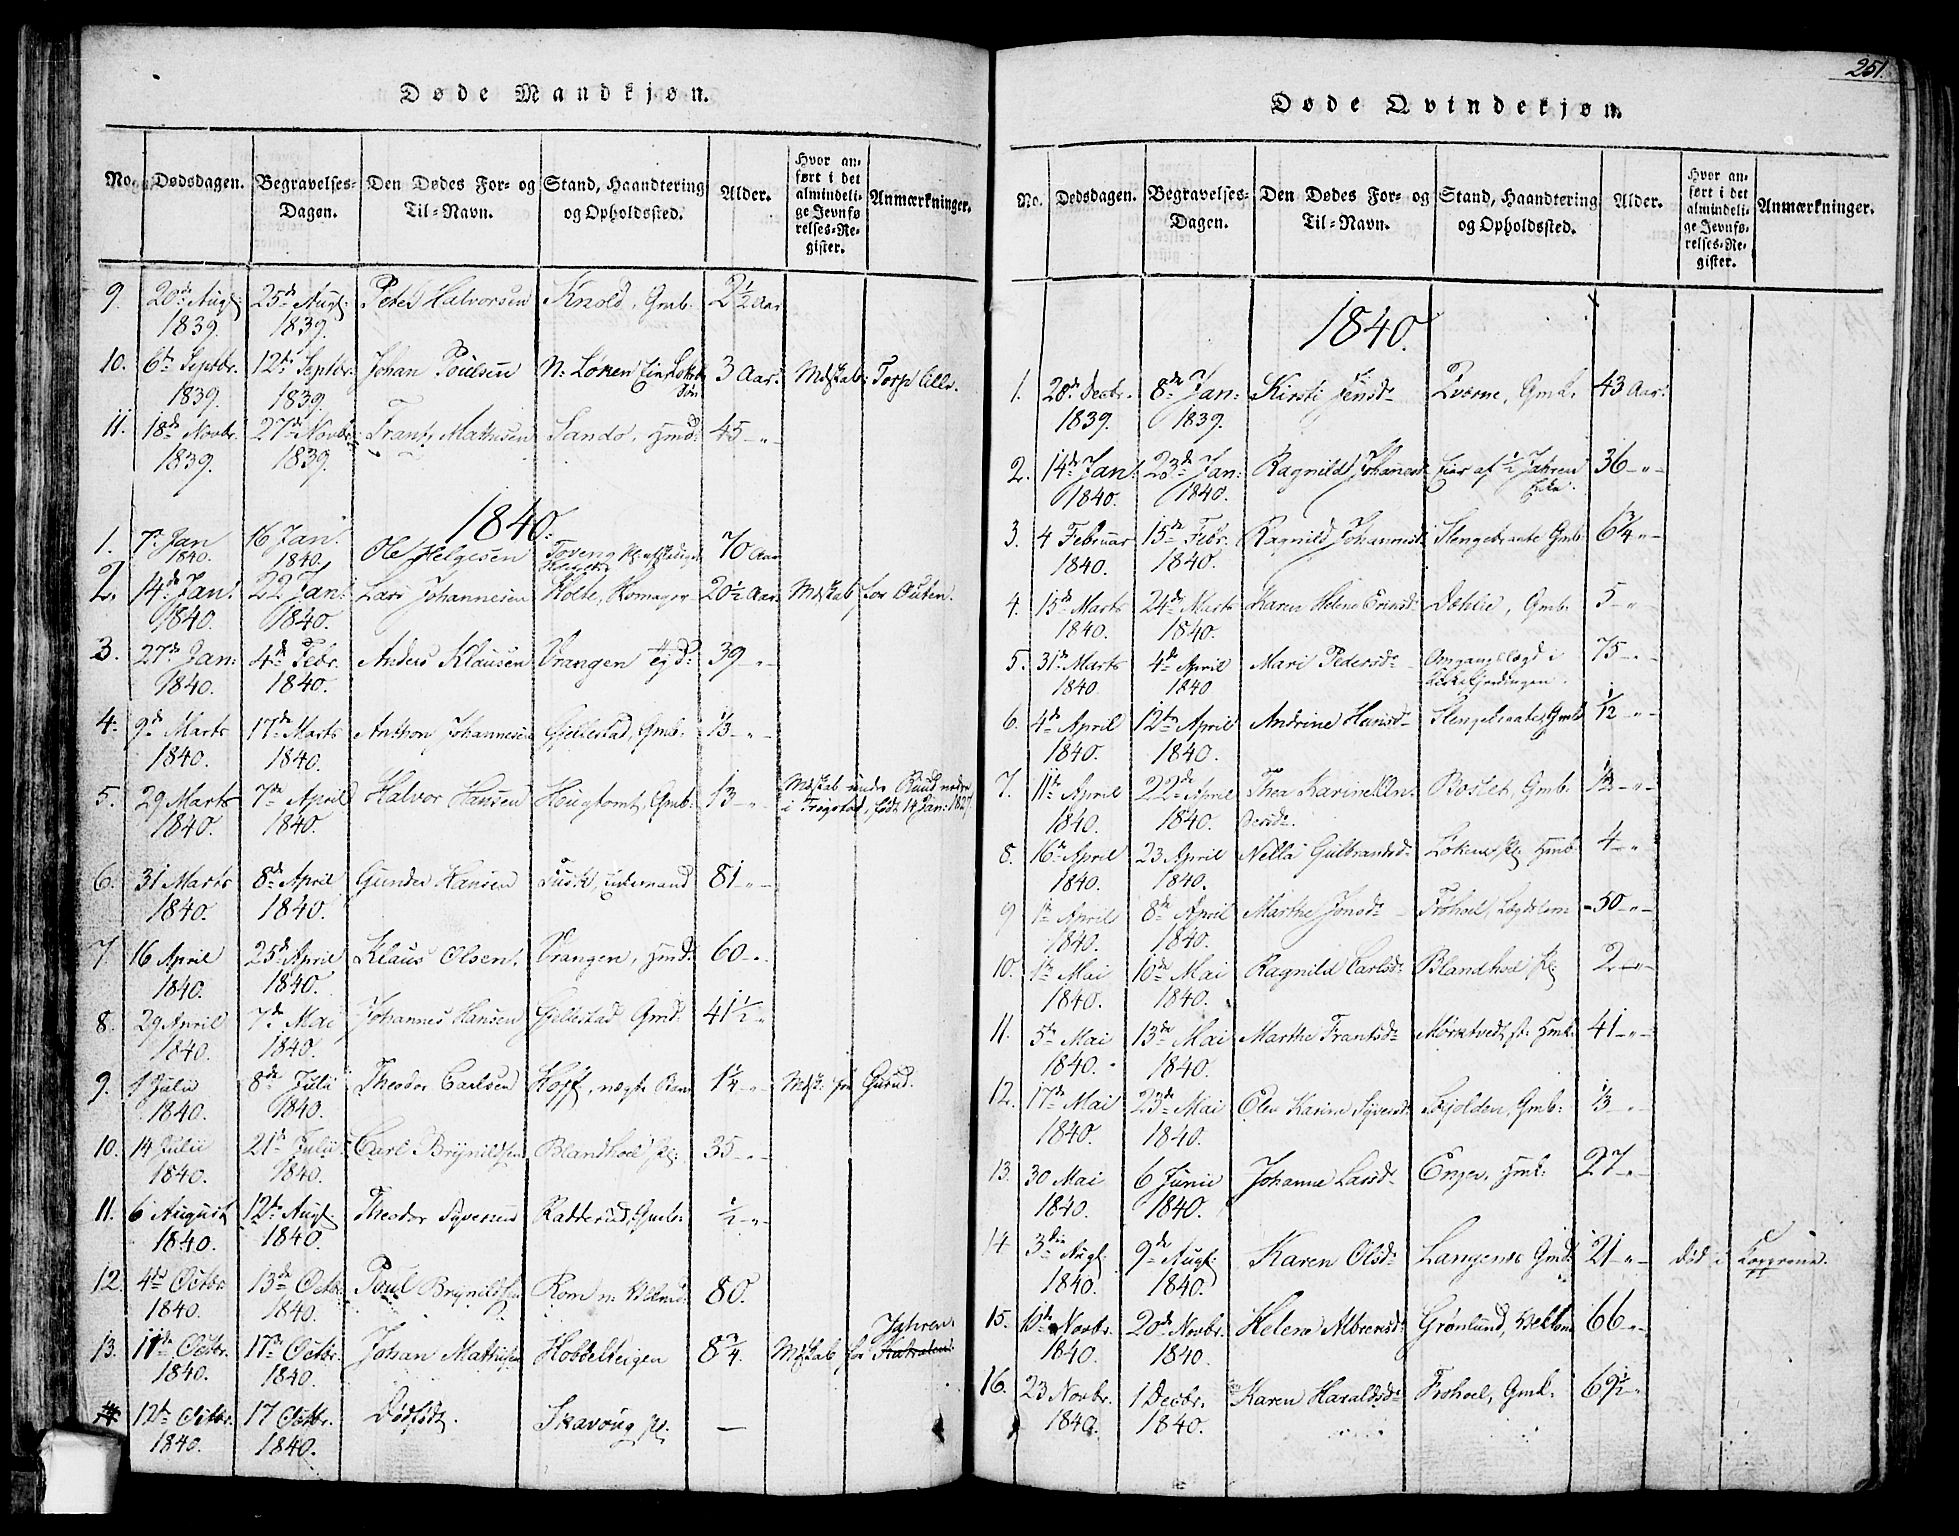 251.
Døde Mandkjøn.
No. Dødsdagen. Begravelses-Dagen. Den Dødes For- og Til-Navn. Stand, Haandtering og Opholdssted. Alder. Hvor anført i det almindelige Jevnførelses-Register. Anmærkninger.
9. 20de Augt: 1839. 25de Augt: 1839. Peter Halvorsen Knold, Gmb. 2½ Aar
10. 6te Septbr. 1839. 12te Septbr: 1839. Johan Poulsen N: Løken 3 Aar. Mdskab: Torp
11. 18de Novbr. 1839. 27de Novbr: 1839. Frantz Mathisen Sando, Hmd: 45 -„-
1840.
1. 7de Jan 1840. 16 Jan: 1840. Ole Helgesen Toveng 70 Aar
2. 14de Jan: 1840. 22 Jan: 1840. Lars Johannesen Holte, 20½ Aar. Mdskab for Outen.
3. 27de Jan: 1840. 4de Febr. 1840. Anders Klausen Vrangen 39 -„-
4. 9de Marts 1840. 17de Marts 1840. Anthon Johannesen Gjellestad, Gmb: 1/3 -„-
5. 29 Marts 1840. 7de April 1840. Halvor Hansen Haugtomt, Gmb. 13 -„- Mdskab under Ruud nedre i Trøgstad, født 14 Jan: 1827.
6. 31 Marts 1840. 8de April 1840. Gunder Hansen 81 -„-
7. 16 April 1840. 25de April 1840. Klaus Olsen. Vrangen, Hmd: 60 -„-
8. 29 April 1840. 7de Mai 1840. Johannes Hansen Gjellestad Gmd: 41½ „
9. 1 Julii 1840. 8de Julii 1840. Theodor Carlsen Kopp, 1¼ -„- Mdsk: for
10. 14 Julii 1840. 21de Julii 1840. Carl Brynildsen Blandhoel Pl: 35 -„-
11. 6 August 1840. 12te Augt 1840. Theodor Syversen Radderud, Gmb: ½ -„-
12. 4de Octbr 1840. 13de Octbr. 1840. Poul Brynildsen Rom 80.
13. 11te Octbr. 1840. 17de Octbr. 1840. Johan Mathisen Hobbelteigen 8¾. Mdskab for Jahren.
12te Octbr. 1840. 17 Octbr. 1840. Dødfødt. Skavoug Pl. —
Døde Qvindekjøn.
No. Dødsdagen. Begravelses-Dagen. Den Dødes For- og Til-Navn. Stand, Haandtering og Opholdssted. Alder. Hvor anført i det almindelige Jevnførelses-Register. Anmærkninger.
1840.
1. 28de Decbr. 1839. 8de Jan: 1839. Kirsti Jensd: Qværne, Gmk. 43 Aar.
2. 14de Jan: 1840. 23de Jan: 1840. Ragnild Johannesd: Eier af ½ Jahren Enke. 36 -„-
3. 4 Februar 1840. 15de Febr. 1840. Ragnild Johannesd: Slengebraate Gmb: 6¾ „-
4. 15de Marts 1840. 24de Marts 1840. Karen Helene Dæhlie, Gmb. 5 -„-
5. 31te Marts 1840. 4de April 1840 Mari Pedersd: Omgangslægd i 75 -„-
6. 4de April 1840. 12te April 1840. Andrine Hansd: Slengebraate, Gmb 1/12 -„-
7. 11te April 1840. 22de April 1840. Thea Karine Bøslet, Gmb. -„-
8. 16de April 1840. 23 April 1840. Nella Gulbrandsd: 4 -„
9 1te April 1840. 8de April 1840. Marthe Jonsd: Frøhoel, Lægdslem 50 -„-
10. 1te Mai 1840. 10de Mai 1840. Ragnild Carlsd: Blandhoel Pl. 2 -„-
11. 5te Mai 1840. 13de Mai 1840. Marthe Frantsd: Mørktvedt, Hmk: 41 -„-
12. 17de Mai 1840. 23de Mai 1840. Elen Karine Syversd: Skjolden, Gmb: 1/3 -„-
13. 30 Mai 1840. 6 Junii 1840. Johanne Larsd: Enger, Hmk: 27 -„-
14 3die Augt. 1840. 9de Augt: 1840. Karen Olsd: Langenes Gmd. 21 -„- død i
15. 10de Novbr. 1840. 20de Novbr. 1840. Helene Albrensd: Grønlund, 66 „-
16. 23 Novbr. 1840. 1 Decbr. 1840. Karen Haraldsd: Frøhoel, Gmk: 69½ „